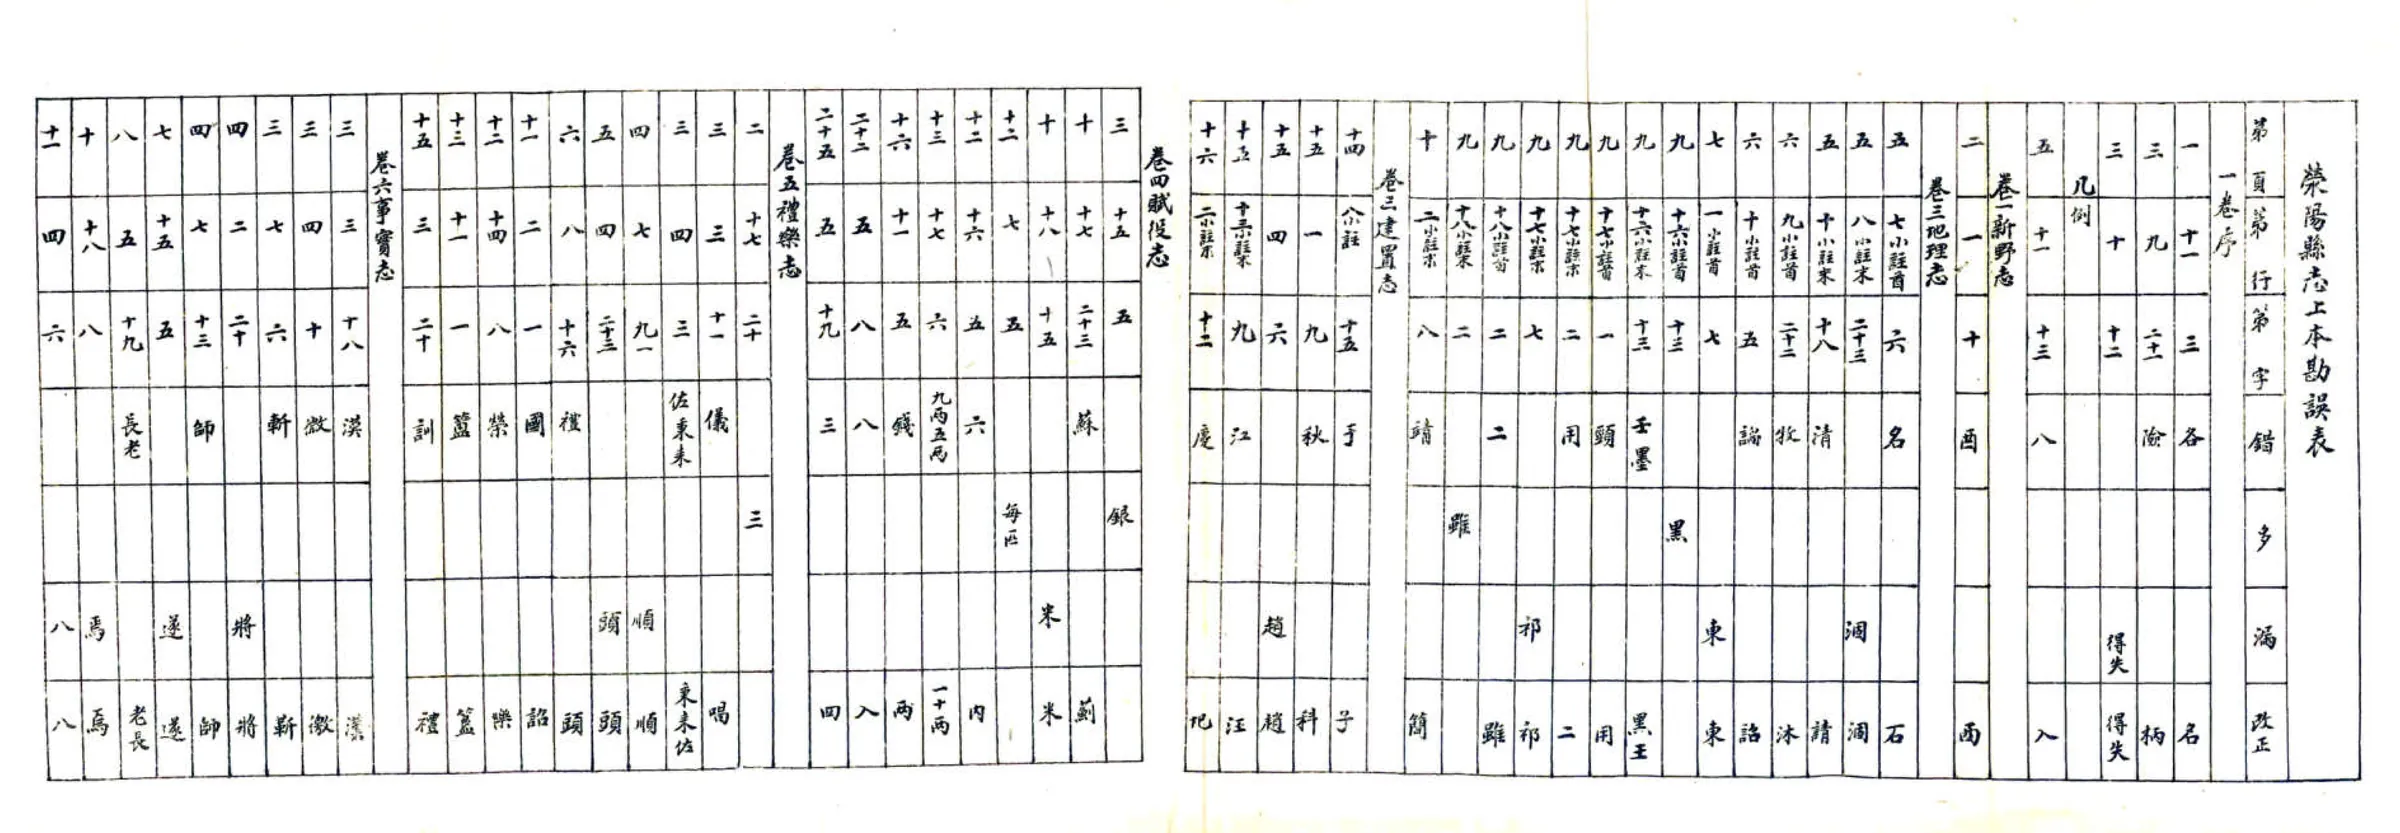 滎陽縣志上本勘誤表
第頁 第行 第字 錯 多 漏 改正
一卷序
一 十一 三 各 名
三 九 二十一 險 柄
三 十 十二 得失 得失
凡例
五 十一 十三 八 入
卷一新野志
二 一 十 酉 西
卷三地理志
五 七小註首 六 名 石
五 八小註末 二十三 涸 涸
五 十小註末 十八 清 請
六 九小註首 二十二 牧 沐
六 十小註首 五 詔
七 一小註首 七 東 東
九 十六小註首 十三 黑
九 十六小註末 十三 壬墨 黑王
九 十七小註首 一 頭 用
九 十七小註末 二 用 二
九 十七小註末 七 祁 祁
九 十八小註首 二 二 雖
九 十八小註末 二 雖
十 二小註末 八 靖 簡
卷三建置志
十四 八小註 十五 于 子
十五 一 九 秋 科
十五 四 六 趙 趙
十五 十三小註末 九 江 汪
十六 二小註末 十二 慶 地
卷四賦役志
三 十五 五 銀
十 十七 二十三 蘇 薊
十 十八 十五 米 米
十二 七 五 每匹
十二 十六 五 六 内
十三 十七 六 九兩五兩 一十兩
十六 十一 五 錢 兩
二十二 五 八 八 入
二十五 五 十九 三 四
卷五禮樂志
二 十七 二十 三
三 三 十一 儀 唱
三 四 三 佐東来 東来佐
四 七 九一 順 順
五 四 二十三 頭 頭
六 八 十六 禮 頭
十一 二 一 國 詔
十二 十四 八 榮 樂
十三 十一 一 簋 簋
十五 三 二十 訓 禮
卷六事實志
三 三 十八 漠 漢
三 四 十 微 徵
三 七 六 斬 靳
四 二 二十 將 將
四 七 十三 師 師
七 十五 五 遂 遂
八 五 十九 長老 老長
十 十八 八 焉 焉
十一 四 六 八 八